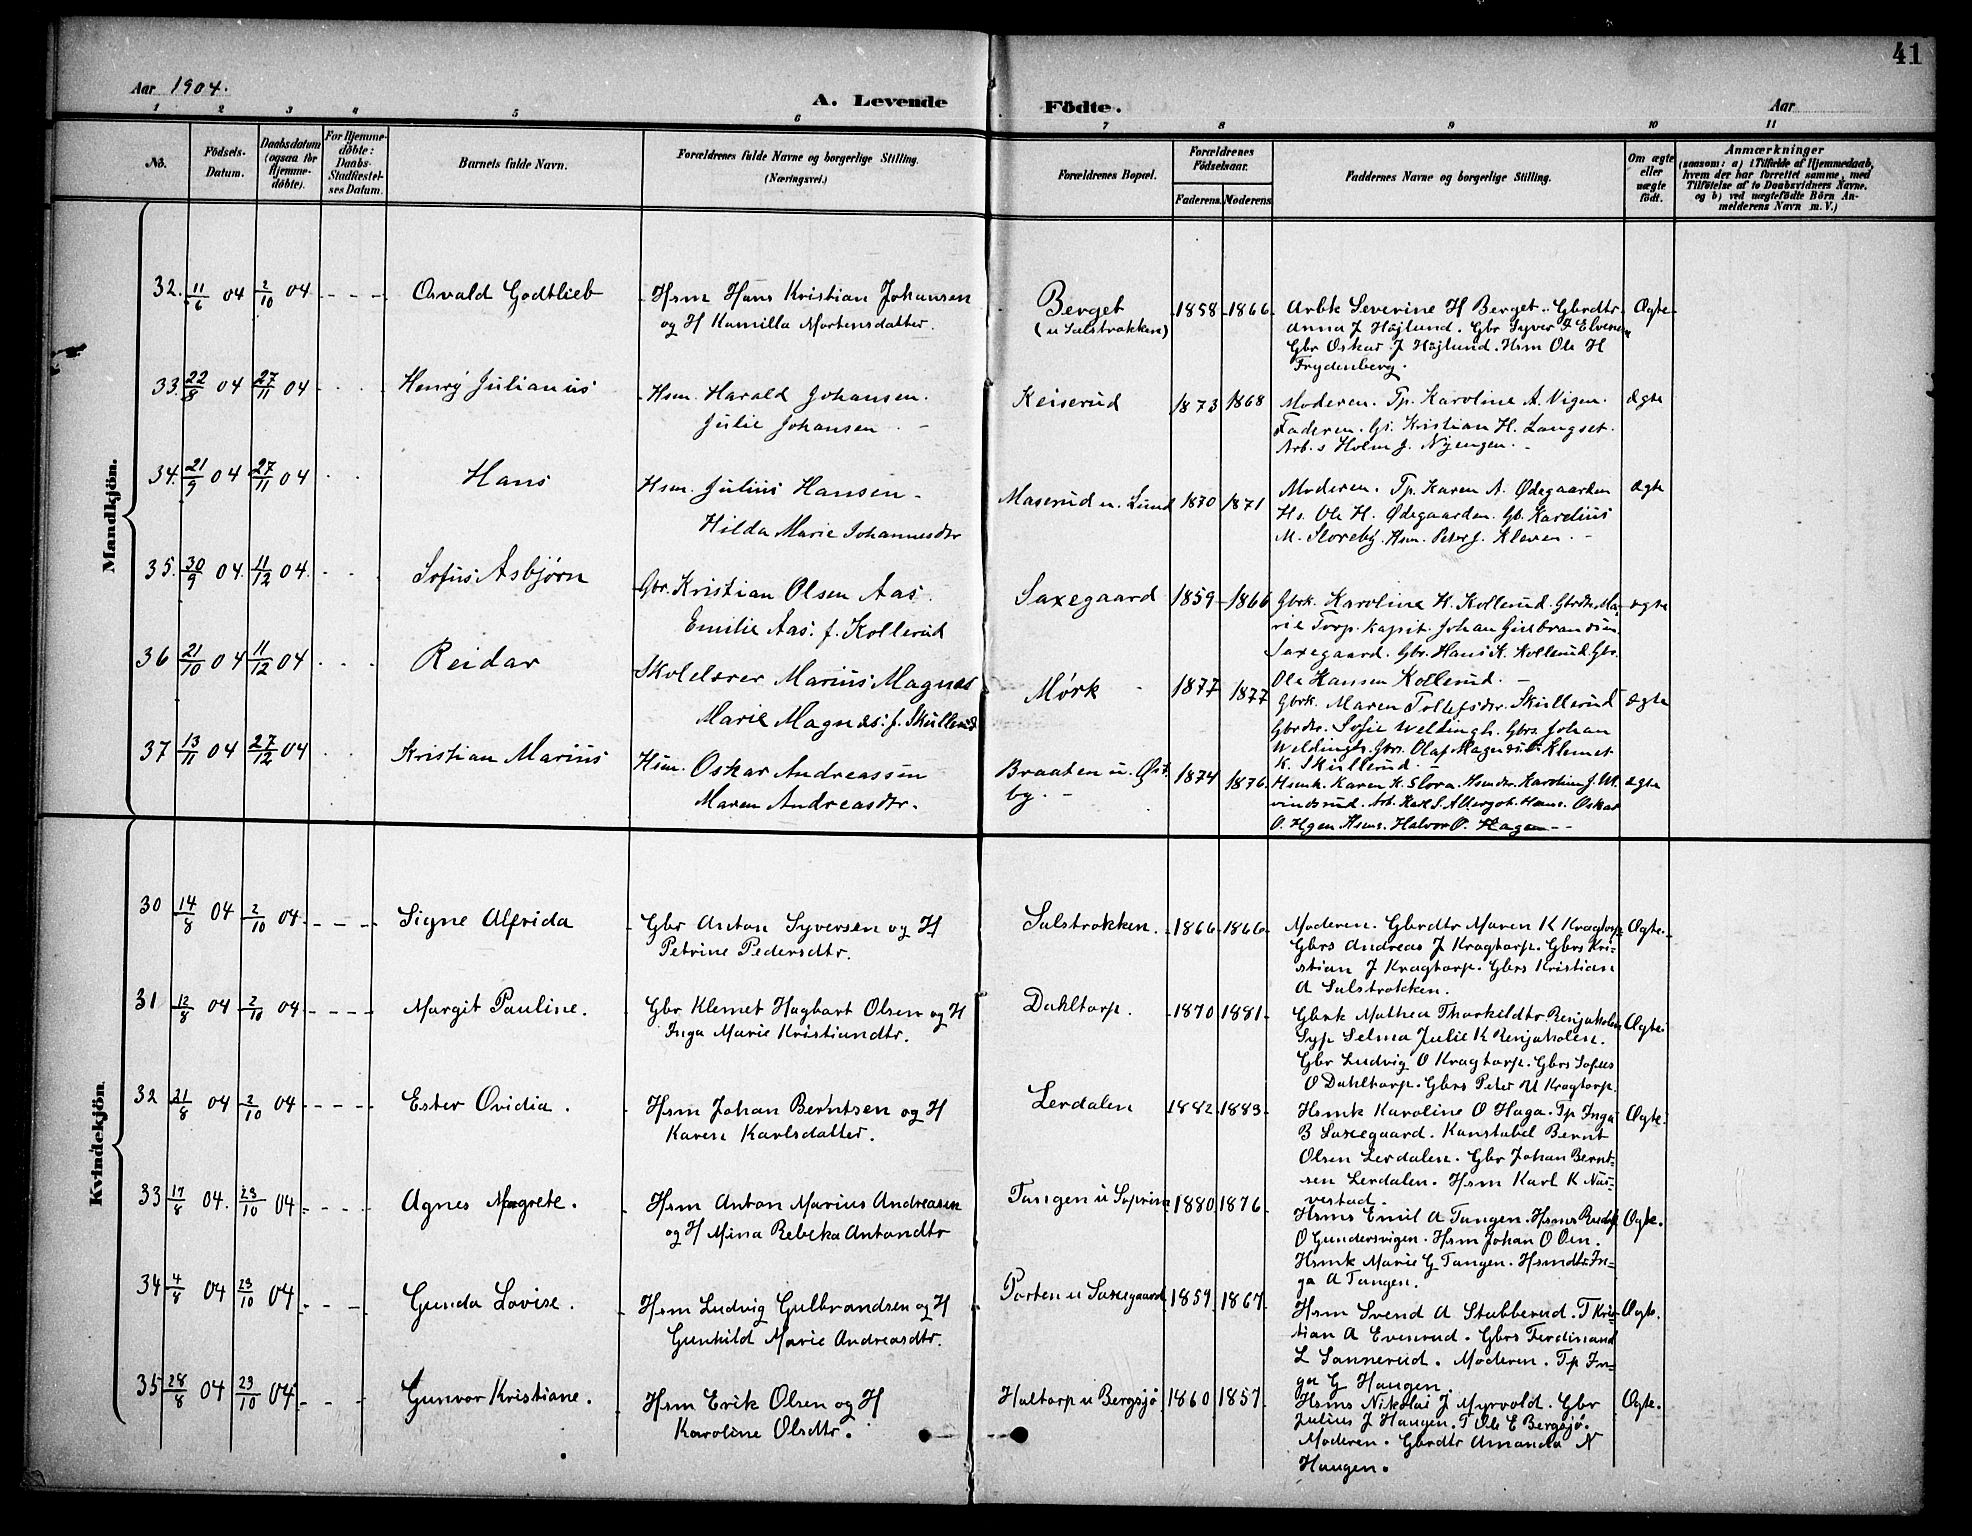 41
Aar 1904.
A. Levende
Födte.
Aar
1 2 3 4 5 6 7 8 9 10 11
No.
Födsels-Datum.
Daabsdatum (ogsaa for Hjemme-döbte).
For Hjemme-döbte: Daabs-Stadfæstel-ses Datum.
Barnets fulde Navn.
Forældrenes fulde Navne og borgerlige Stilling.
(Næringsvei.)
Forældrenes Bopæl.
Forældrenes Födselsaar.
Faderens. Moderens.
Faddernes Navne og borgerlige Stilling.
Om ægte eller uægte födt.
Anmærkninger
(saasom: a) i Tilfælde af Hjemmedaab,
hvem der har forrettet samme, med
Tilföielse af to Daabsvidners Navne,
og b) ved uægtefödte Börn An-
melderens Navn m. V.)
Mandkjön.
32. 11/6 04 2/10 04 - - - Osvald Godtlieb
Hsm Hans Kristian Johansen
og H Kamilla Mortensdatter.
Berget
(u Sulstrakken)
1858 - 1866
Arbk Severine H Berget. Gbrdtr
Anna J Höjlund. Gbr Syver J Elvenes
Gbr Oskar J Höjlund. Hsm Ole H
Frydenberg.
Ægte
33. 22/8 04 27/11 04 Henry Julianus
Hsm. Harald Johansen.
Julie Johansen
Keiserud
1873 1868
Moderen. Tp. Karoline A. Vigen.
Faderen. Gs. Kristian H. Langset.
Arb. s Holm J. Nyengen.
ægte
34. 21/9 04 27/11 04 Hans
Hsm. Julius Hansen
Hilda Marie Johannesdtr
Maserud u. Lund
1870 1871
Moderen. Tp. Karen A. Ødegaarden
Hs. Ole H. Ødegaarden. Gb. Karelius
M. Sloreby. Hsm. Peter J. Kleven.
ægte
35. 30/9 04. 11/12 04. Sofus Asbjørn
Gbr. Kristian Olsen Aas.
Emilie Aas: f. Kollerud
Saxegaard
1859 - 1866
Gbrk. Karoline H. Kollerud. Gbrdtr Ma-
rie Torp. Kapit. Johan Gulbrandsen
Saxegaard. Gbr. Hans K. Kollerud. Gbr.
Ole Hansen Kollerud.
ægte
36 21/10 04 11/12 04 Reidar
Skolelærer Marius Magnæs
Marie Magnæs: f. Skullerud
Mørk
1877 1877
Gbrk. Maren Tollefsdtr. Skullerud
Gbrdtr. Sofie Weldingh. Gbrs. Johan
Weldingh. Gbrs. Olaf Magnæs. Klemet
K. Skullerud.
ægte
37 13/11 04 27/12 04 Kristian Marius
Hsm. Oskar Andreassen
Maren Andreasdtr.
Braaten u. Øst
by.
1874 1876
Hsmk. Karen K. Slora. Hsmdtr. Karoline J.
vindsrud. Arb. Karl S. Allergot. Hsms. Oskar
O. Hgen Hsms. Halvor P. Hagen
ægte
Kvindekjön.
30 14/8 04 2/10 04 - - - Signe Alfrida
Gbr Anton Syversen og H
Petrine Pedersdtr.
Sulstrakken.
1866 - 1866
Moderen. Gbrdtr Maren K Kragtorp
Gbrs Andreas J Kragtorp. Gbrs Kri-
stian J Kragtorp. Gbrs Kristian
A Sulstrakken.
Ægte
31 12/8 04 2/10 04 - - - - Margit Pauline.
Gbr Klemet Hagbart Olsen og H
Inga Marie Kristiandtr.
Dahltorp.
1870 1881
Gbrk Mathea Thorkildtr Renjaholen
Syp Selma Julie K Renjaholen.
Gbr Ludvig O Kragtorp. Gbrs Sofus
O Dahltorp. Gbrs Peter U Kragtorp.
Ægte
32 21/8 04 2/10 04 - - - - Ester Ovidia.
Hsm Johan Berntsen og H
Karen Karlsdatter.
Lerdalen
1882 - 1883
Hsmk Karoline O Haga. Tp Inga
B Saxegaard. Konstabel Bernt
Olsen Lerdalen. Gbr Johan Bernt-
sen Lerdalen. Hsm Karl K Næs-
vestad.
Ægte.
33 17/8 04. 23/10 04 - - - Agnes Magrete.
Hsm Anton Marius Andreasen
og H Mina Rebeka Antondtr
Tangen u Soprim
1880 1876
Hsms Emil A Tangen. Hsms Rudolf
O Gundersvigen. Hsm Johan O Oen.
Hsmk Marie G Tangen. Hsmdtr In-
ga A Tangen.
Ægte.
34 4/8 04 23/10 04 - - - Gunda Lovise.
Hsm Ludvig Gulbrandsen og H
Gunhild Marie Andreasdtr.
Porten u Saxegaard
1859 1867
Hsm Svend A Stubberud. T Kri-
stian A Evenrud. Gbrs Ferdinand
L Sannerud. Moderen. Tp In-
ga G Haugen.
Ægte.
35 28/8 04 23/10 04 - - - Gunvor Kristiane.
Hsm Erik Olsen og H
Karoline Olsdtr.
Haltorp u Bergsjø
1860 1857
Hsms Nikolai J Myrvold. Gbr
Julius J Haugen. T Ole E Bergsjø.
Moderen. Gbrdtr Amanda N
Haugen.
Ægte.